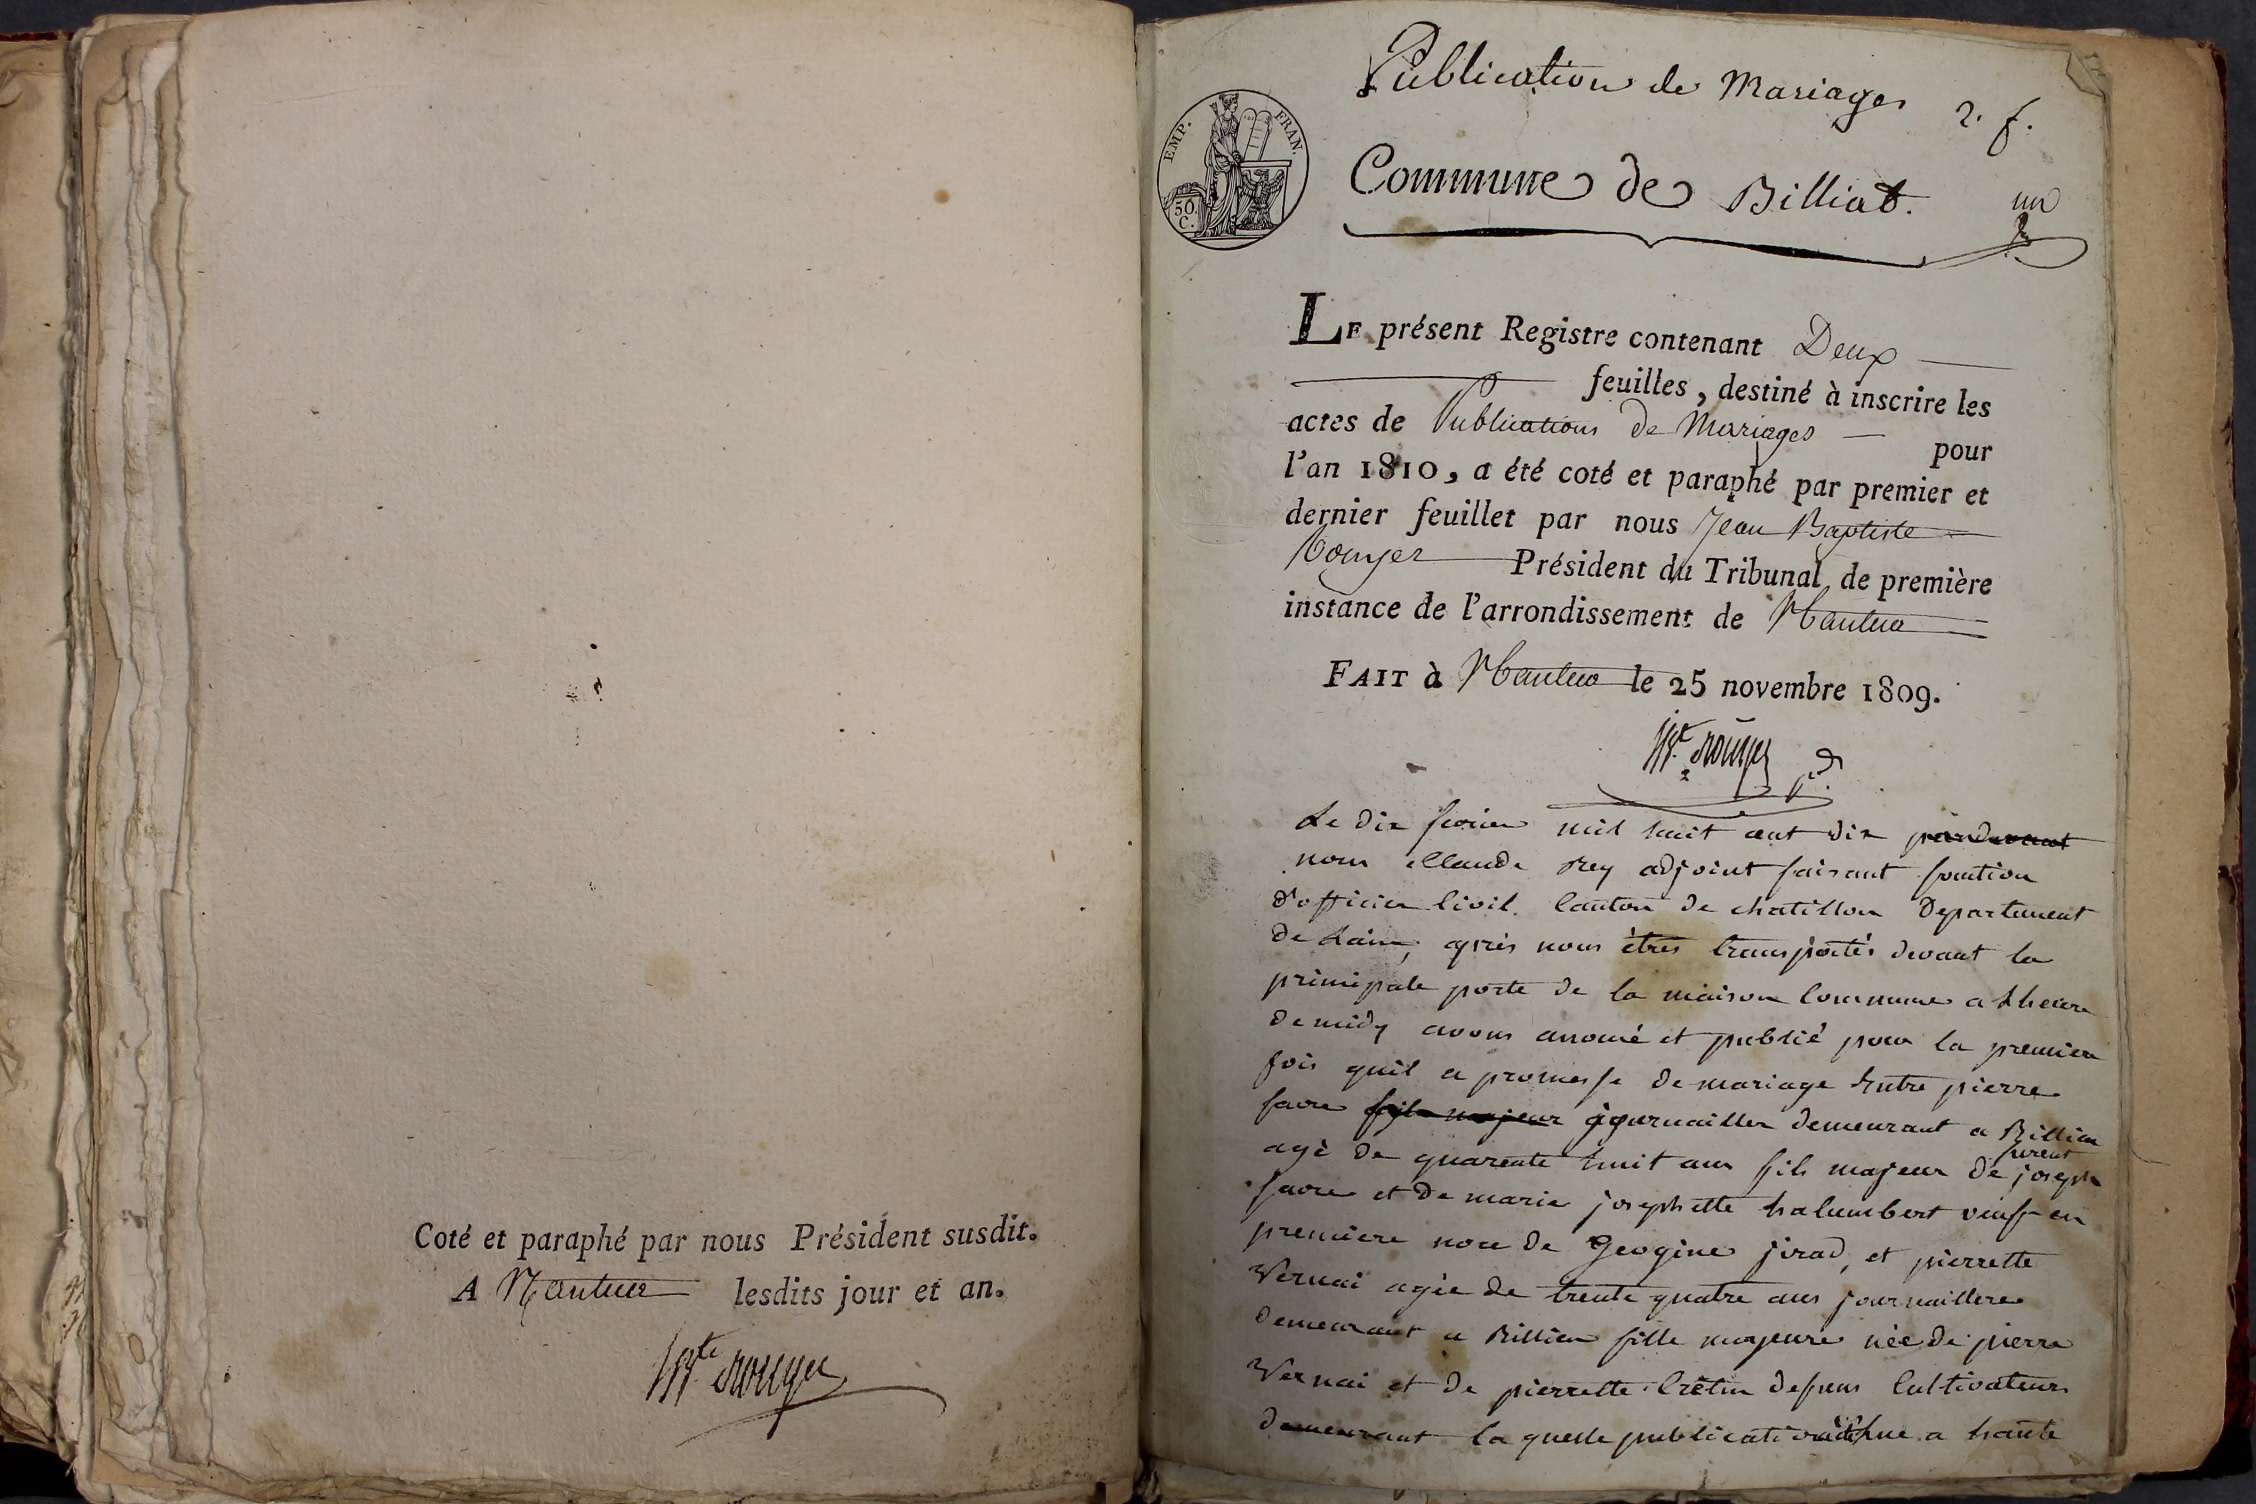 Coté et paraphé par nous Président susdit.
A Nantua lesdits jour et an.
JB.te rouyer
Publication de Mariages 2. f.
EMP. FRAN.
50.
C.
Commune de Billiat. un
LE présent Registre contenant Deux
feuilles, destiné à inscrire les
actes de Publications de Mariages pour
l'an 1810, a été coté et paraphé par premier et
dernier feuillet par nous Jean Baptiste
Rouyer Président du Tribunal de première
instance de l'arrondissement de Nantua
FAIT à Nantua le 25 novembre 1809.
JB.te rouyer p.d
Le dix fevrier mil huit cent dix pardevant
nous Claude Rey adjoint faisant fontion
d'officier Civil. Canton de chatillon Departement
de Lain, après nous êtres transportés devant la
principale porte de la maison Commune a Lheure
de midy avons anoncé et publié pour la premiere
fois quil a promesse de mariage Entre pierre
favre fils majeur journaillier demeurant a Billia
agé de quarente huit ans fils majeur de furent joseph
favre et de marie josephette halumbert veuf en
premiere noce de Geogine jirad, et pierrette
Vernai agée de trente quatre ans journaillere
demeurant a Billia fille majeure née de pierre
Vernai et de pierrette Crétin defuns Cultivateurs
demeurant la quelle publication lhue a haute